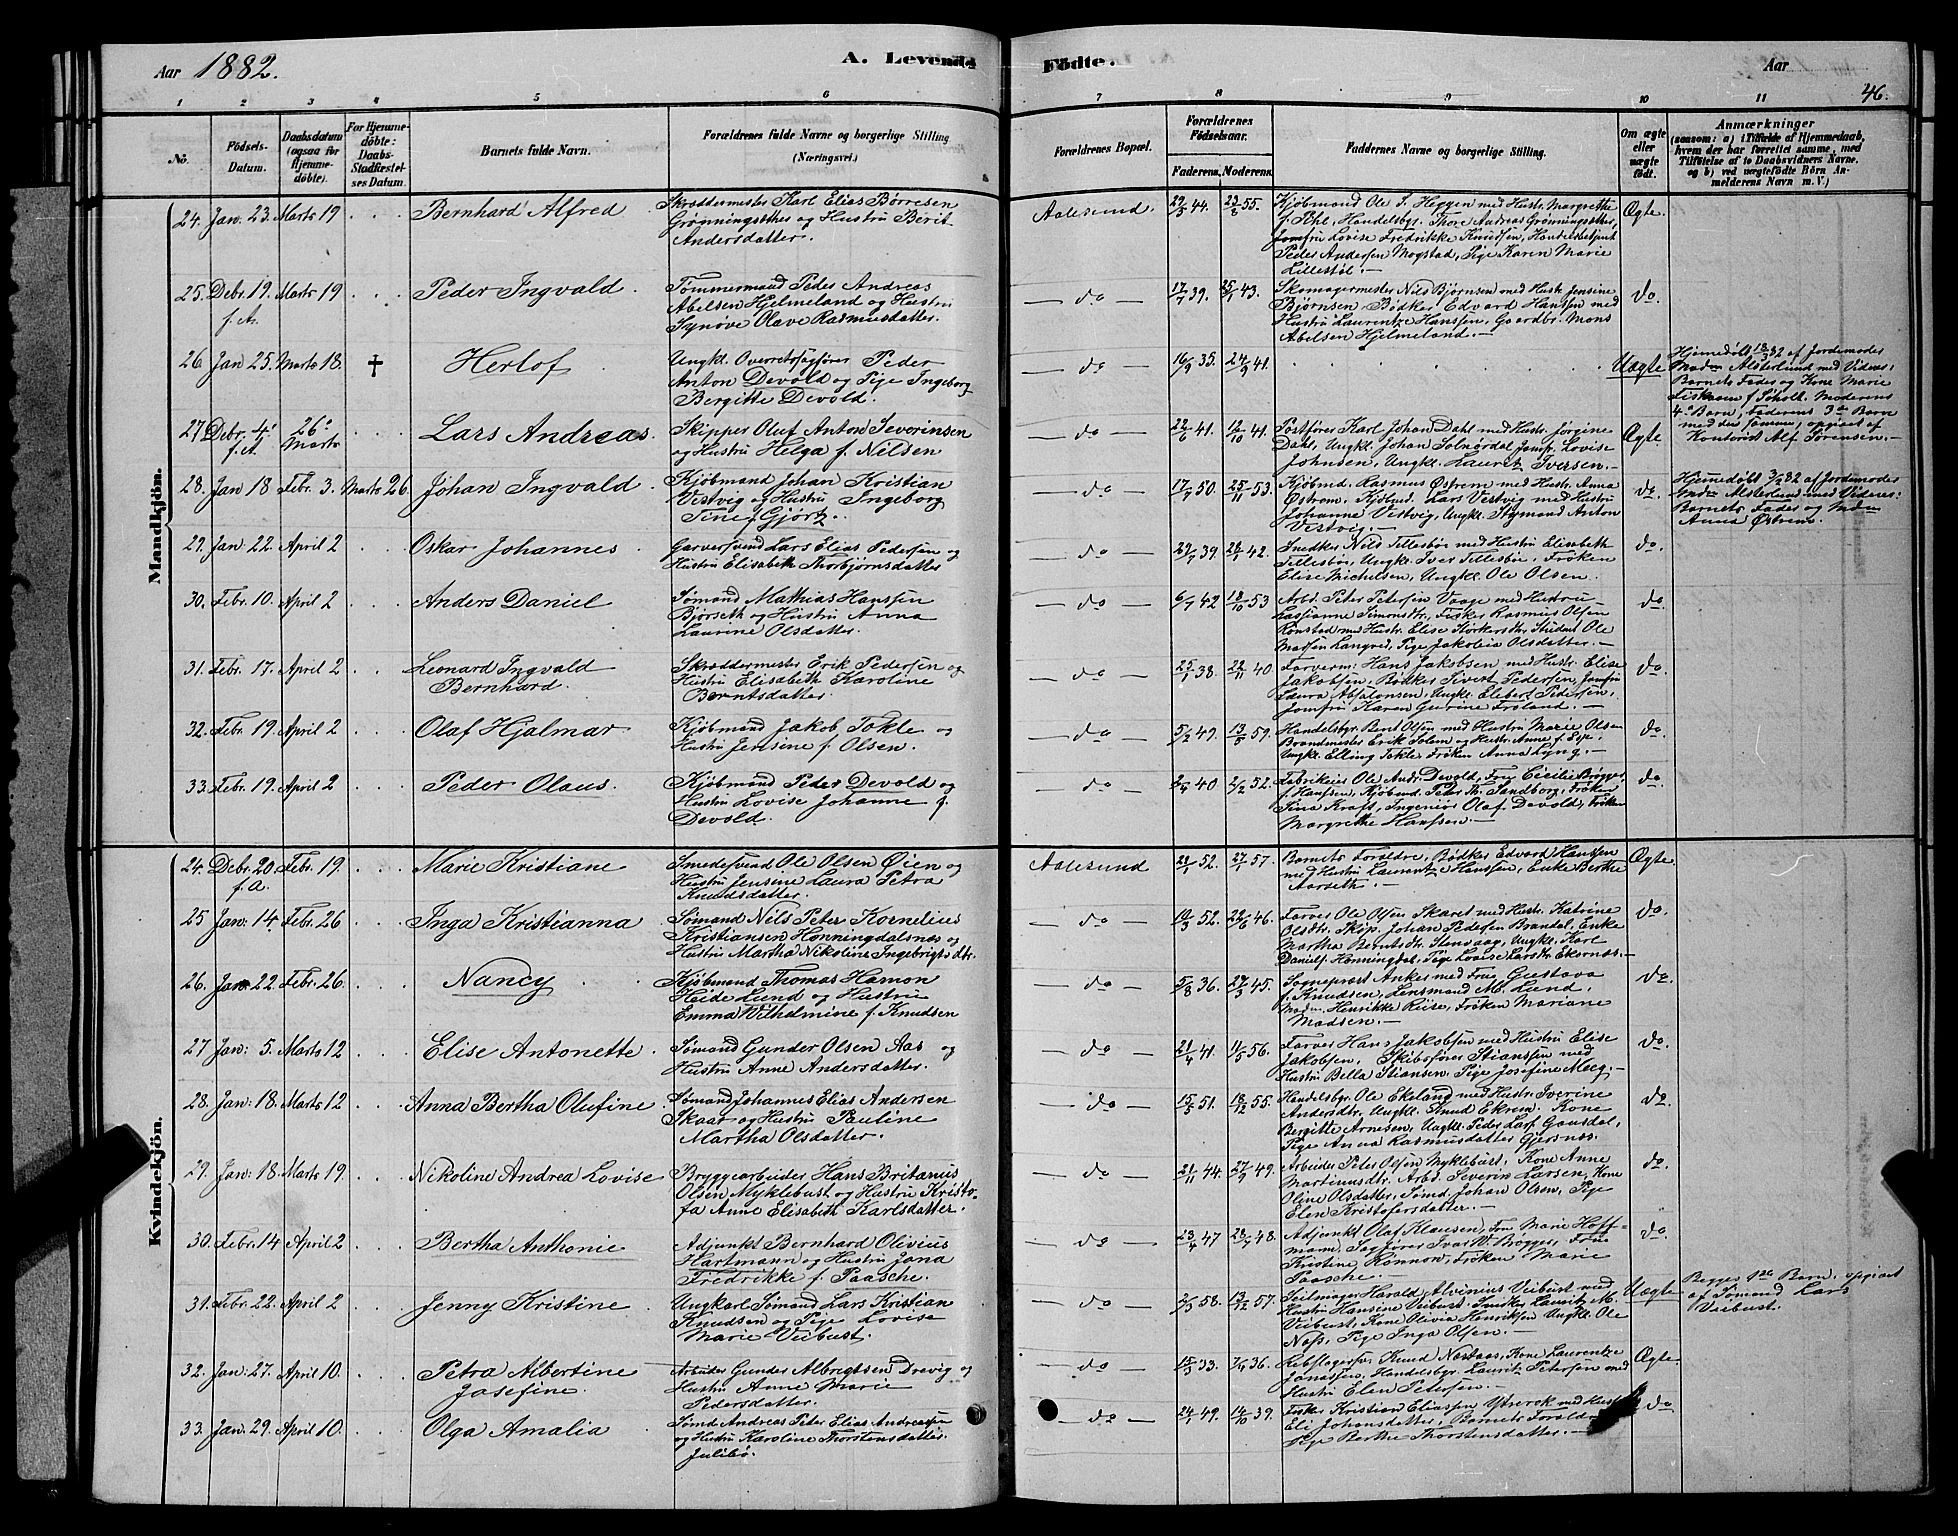 Aar 1882.
A. Levende Fødte.
Aar
46.
1 2 3 4 5 6 7 8 9 10 11
No.
Fødsels-Datum.
Daabsdatum (ogsaa for Hjemmedøbte).
For Hjemmedøbte: Daabs-Stadfæstelses Datum.
Barnets fulde Navn.
Forældrenes fulde Navne og borgerlige Stilling (Næringsvei.)
Forældrenes Bopæl.
Forældrenes Fødselsaar.
Faderens. Moderens.
Faddernes Navne og borgerlige Stilling.
Om ægte eller uægte født.
Anmærkninger
(saasom: a) i Tilfælde af Hjemmedaab, hvem der har forrettet samme, med Tilføielse af to Daabsvidners Navne, og b) ved uægtefødte Børn Anmelderens Navn m. V.)
Mandkjøn.
24. Jan. 23. Marts 19 Bernhard Alfred
Skræddermester Karl Elias Børresen
Grønningsæther og Hustru Berit
Andersdatter.
Aalesund. 29/5 44. 23/8 55.
Kjøbmand Ole J. Heggen med Hustr. Margrethe
f. Bhl, Handelsbgr. Thore Andreas Grønningsæther,
Jomfru Lovise Fredrikke Knudsen, Handelsbetjent
Peder Andersen Mogstad, Pige Karen Marie
Lillestøl.—
Ægte.
25. Debr. 19. f. A. Marts 19 Peder Ingvald.
Tømmermand Peder Andreas
Abelsen Hjelmeland og Hustru
Synøve Olave Rasmusdatter.
— do — 17/7 39. 25/1 43.
Skomagermester Nils Bjørnsen med Hustr. Jensine
Bjørnsen. Bødker Edvard Hansen med
Hustru Laurentze Hanssen, Gaardbr. Mons
Abelsen Hjelmeland.—
do.
26 Jan 25. Marts 18. † Herlof
Ungkl. Overretssagfører Peder
Anton Devold og Pige Ingeborg
Bergitte Devold.
— do — 16/9 35. 24/9 41.
Uægte
Hjemedøbt 18/3 82 af Jordemoder
Madm Alsterlund med Vidner:
Barnets Fader og Kone Marie
Fiskaaen f. Søholt. Moderens
4de Barn, Faderens 3de Barn
med den samme, opgivet af
Kontorist Alf Sørensen.—
27 Debr. 4. f. A. 26. Marts Lars Andreas.
Skipper Oluf Anton Severinsen
og Hustru Helga f. Nilsen
— do — 22/6 41. 12/10 41.
Postfører Karl Johan Dahl med Hustr. Jørgine
Dahl, Ungkl. Johan Solnørdal, Jomfr. Lovise
Johnsen, Ungkl. Lauritz Iversen.—
Ægte
28. Jan 18 Febr. 3. Marts 26. Johan Ingvald.
Kjøbmand Johan Kristian
Vestvig og Hustru Ingeborg
Tine f. Gjørtz.
— do — 17/7 50. 25/11 53.
Kjøbmd. Rasmus Østrem med Hustr. Anna
Østrem, Kjøbmd. Lars Vestvig med Hustru
Johanne Vestvig, Ungkl. Sigmund Anton
Vestvig.—
do.
Hjemedøbt 3/2 82 af Jordemoder
Madm Alsterlund med Vidner:
Barnets Fader og Mdm
Anna Østrem.
29. Jan 22. April 2 Oskar Johannes
Garversvend Lars Elias Pedersen og
Hustru Elisabeth Thorbjørnsdatter
— do — 29/7 39. 28/1 42.
Snedker Nils Tellesbø med Hustru Elisabeth
Tellesbø, Ungkl. Iver Tellesbø Frøken
Elise Michelsen, Ungkl. Ole Olsen.
do.
30. Febr. 10. April 2 Anders Daniel
Sømand Mathias Hansen
Bjørseth og Hustru Anna
Laurine Olsdatter.
— do — 6/7 42 18/10 53
Arbd. Peter Petersen Vaage med Hustru
Simonsdtr. Fisker Rasmus Olsen
Rønstad med Hustr. Elise Student Ole
Madsen Langved, Pige Jakobia Olsdatter.—
do
31. Febr. 17. April 2 Leonard Ingvald
Bernhard.
Skræddermester Erik Pedersen og
Hustru Elisabeth Karoline
Berntsdatter.
— do — 25/1 38. 22/11 40
Farverm: Hans Jakobsen med Hustr. Elise
Jakobsen, Bødker Sivert Pedersen, Jomfru
Laura Absalonsen, Ungkl. Elebert Pedersen,
Jomfru Karen Gurine Frøland.—
do.
32. Febr. 19. April 2 Olaf Hjalmar
Kjøbmand Jakob Tokle og
Hustru Jensine f. Olsen.
— do — 5/2 49. 13/5 59.
Handelsbgr. Bernt Olsen med Hustru Marie Olsen
Brandmester Erik Solem og Hustr. Anne f. Eye,
Ungkl. Elling Tokle Frøken Anna Lyng.—
do.
33. Febr. 19. April 2 Peder Olaus.
Kjøbmand Peder Devold og
Hustru Lovise Johanne f.
Devold.
— do — 2/4 40 2/2 52.
Fabrikeier Ole Andr. Devold, Frue Cicilie Brøgger
f. Hanssen, Kjøbmd. Peter Th. Sandborg, Frøken
Tina Kraft, Ingeniør Olaf Devold, Frøken
Margrethe Hanssen.—
do.
Kvindekjøn.
24. Debr. 20. f. A. Febr. 19. Marie Kristiane
Smedesvend Ole Olsen Øien og
Hustru Jensine Laura Petra
Knudsdatter.
Aalesund 28/1 52. 27/7 57.
Barnets Forældre, Bødker Edvard Hanssen
med Hustru Laurentze Hanssen, Enke Berthe
Aarseth.—
Ægte.
25 Jan: 14. Febr. 26 Inga Kristianna
Sømand Nils Peter Kornelius
Kristiansen Honningdalsnæs og
Hustru Martha Nikoline Ingebrigtsdtr.
— do — 19/3 52. 22/6 46.
Farver Ole Olsen Skaret med Hustr. Katrine
Olsdtr. Skip. Johan Pedersen Brandal, Enke
Martha Berntsdtr. Stenvaag, Ungkl. Karl
Danielsen Honningdal, Pige Lovise Larsdtr. Ekornæs.—
do.
26. Jan: 22 Febr. 26. Nancy
Kjøbmand Thomas Hamon
Heide Lund og Hustru
Emma Vilhelmine f. Knudsen
— do — 5/8 36. 27/3 45.
Sogneprest Anker med Frue Gustava
f. Knudsen, Lensmand M. Lund,
Madm. Henrikke Riise, Frøken Mariane
Madsen.—
do.
27 Jan: 5. Marts 12 Elise Antonette.
Sømand Gunder Olsen Aas og
Hustru Anne Andersdatter.
— do — 21/4 41. 11/5 56.
Farver Hans Jakobsen med Hustru Elise
Jakobsen, Skibsfører Stianssen med
Hustru Bella Stiansen, Pige Josefine Moeg.—
do.
28. Jan: 18. Marts 12 Anna Bertha Olufine
Sømand Johannes Elias Andersen
Skaar og Hustru Pauline
Martha Olsdatter.
— do — 15/5 51. 18/12 55.
Handelsbgr. Ole Ekeland med Hustr. Iverine
Andersdtr. Ungkl. Knud Ekrem. Kone
Bergitte Arnesen, Ungkl. Peder Larf. Gausdal,
Pige Anna Rasmusdatter Gjersnæs.
do.
29. Jan. 18. Marts 19. Nikoline Andrea Lovise
Bryggearbeider Hans Britanus
Olsen Myklebust og Hustru Kristo-
fa Anne Elisabeth Karlsdatter.
— do — 21/11 44. 27/9 49.
Arbeider Peter Olsen Myklebust, Kone Anne
Martinusdtr. Arbd. Severin Larsen, Kone
Oline Olsdatter, Sømd. Johan Olsen, Pige
Elen Kristofersdatter.—
do.
30. Febr. 14 April 2 Bertha Anthonie
Adjunkt Bernhard Olivius
Hartmann og Hustru Jona
Fredrikke f. Paasche.
— do — 23/4 47 28/7 48.
Adjunkt Olaf Klausen, Fru Marie Hoff-
mann, Sagfører Ivar W. Brøgger, Frue
Kristine Rønnov, Frøken Marie
Paasche.—
do.
31. Febr. 22. April 2 Jenny Kristine
Ungkarl Sømand Lars Kristian
Knudsen og Pige Lovise
Marie Veibust.
— do — 2/3 58. 13/12 57.
Seilmager Harald Alvinius Veibust med
Hustru Hansine Veibust. Snedker Lauritz M.
Veibust, Kone Olivia Henriksen Ungkl. Ole
Næss, Pige Inga Olsen.—
Uægte
Begges 1ste Barn, opgivet
af Sømand Lars
Veibust.
32. Jan: 27. April 10. Petra Albertine
Josefine.
Arbeider Gunder Albrigtsen Drevig og
Hustru Anne Marie
Pedersdatter.
— do — 15/3 33. 7/4 36.
Rebslagersv. Knud Nastaas, Kone Laurentze
Jonassen, Handelsbgr. Lauritz Petersen med
Hustru Elen Petersen.—
Ægte.
33. Jan. 29. April 10. Olga Amalia
Sømd Andreas Peter Elias Andreassen
og Hustru Karoline Thorstensdatter
Julibø.
— do — 24/7 49. 14/10 39.
Fisker Kristian Eliassen Ytterøk med Hustr.
Eli Johansdatter, Barnets Forældre
Pige Berthe Thorstensdatter.—
do